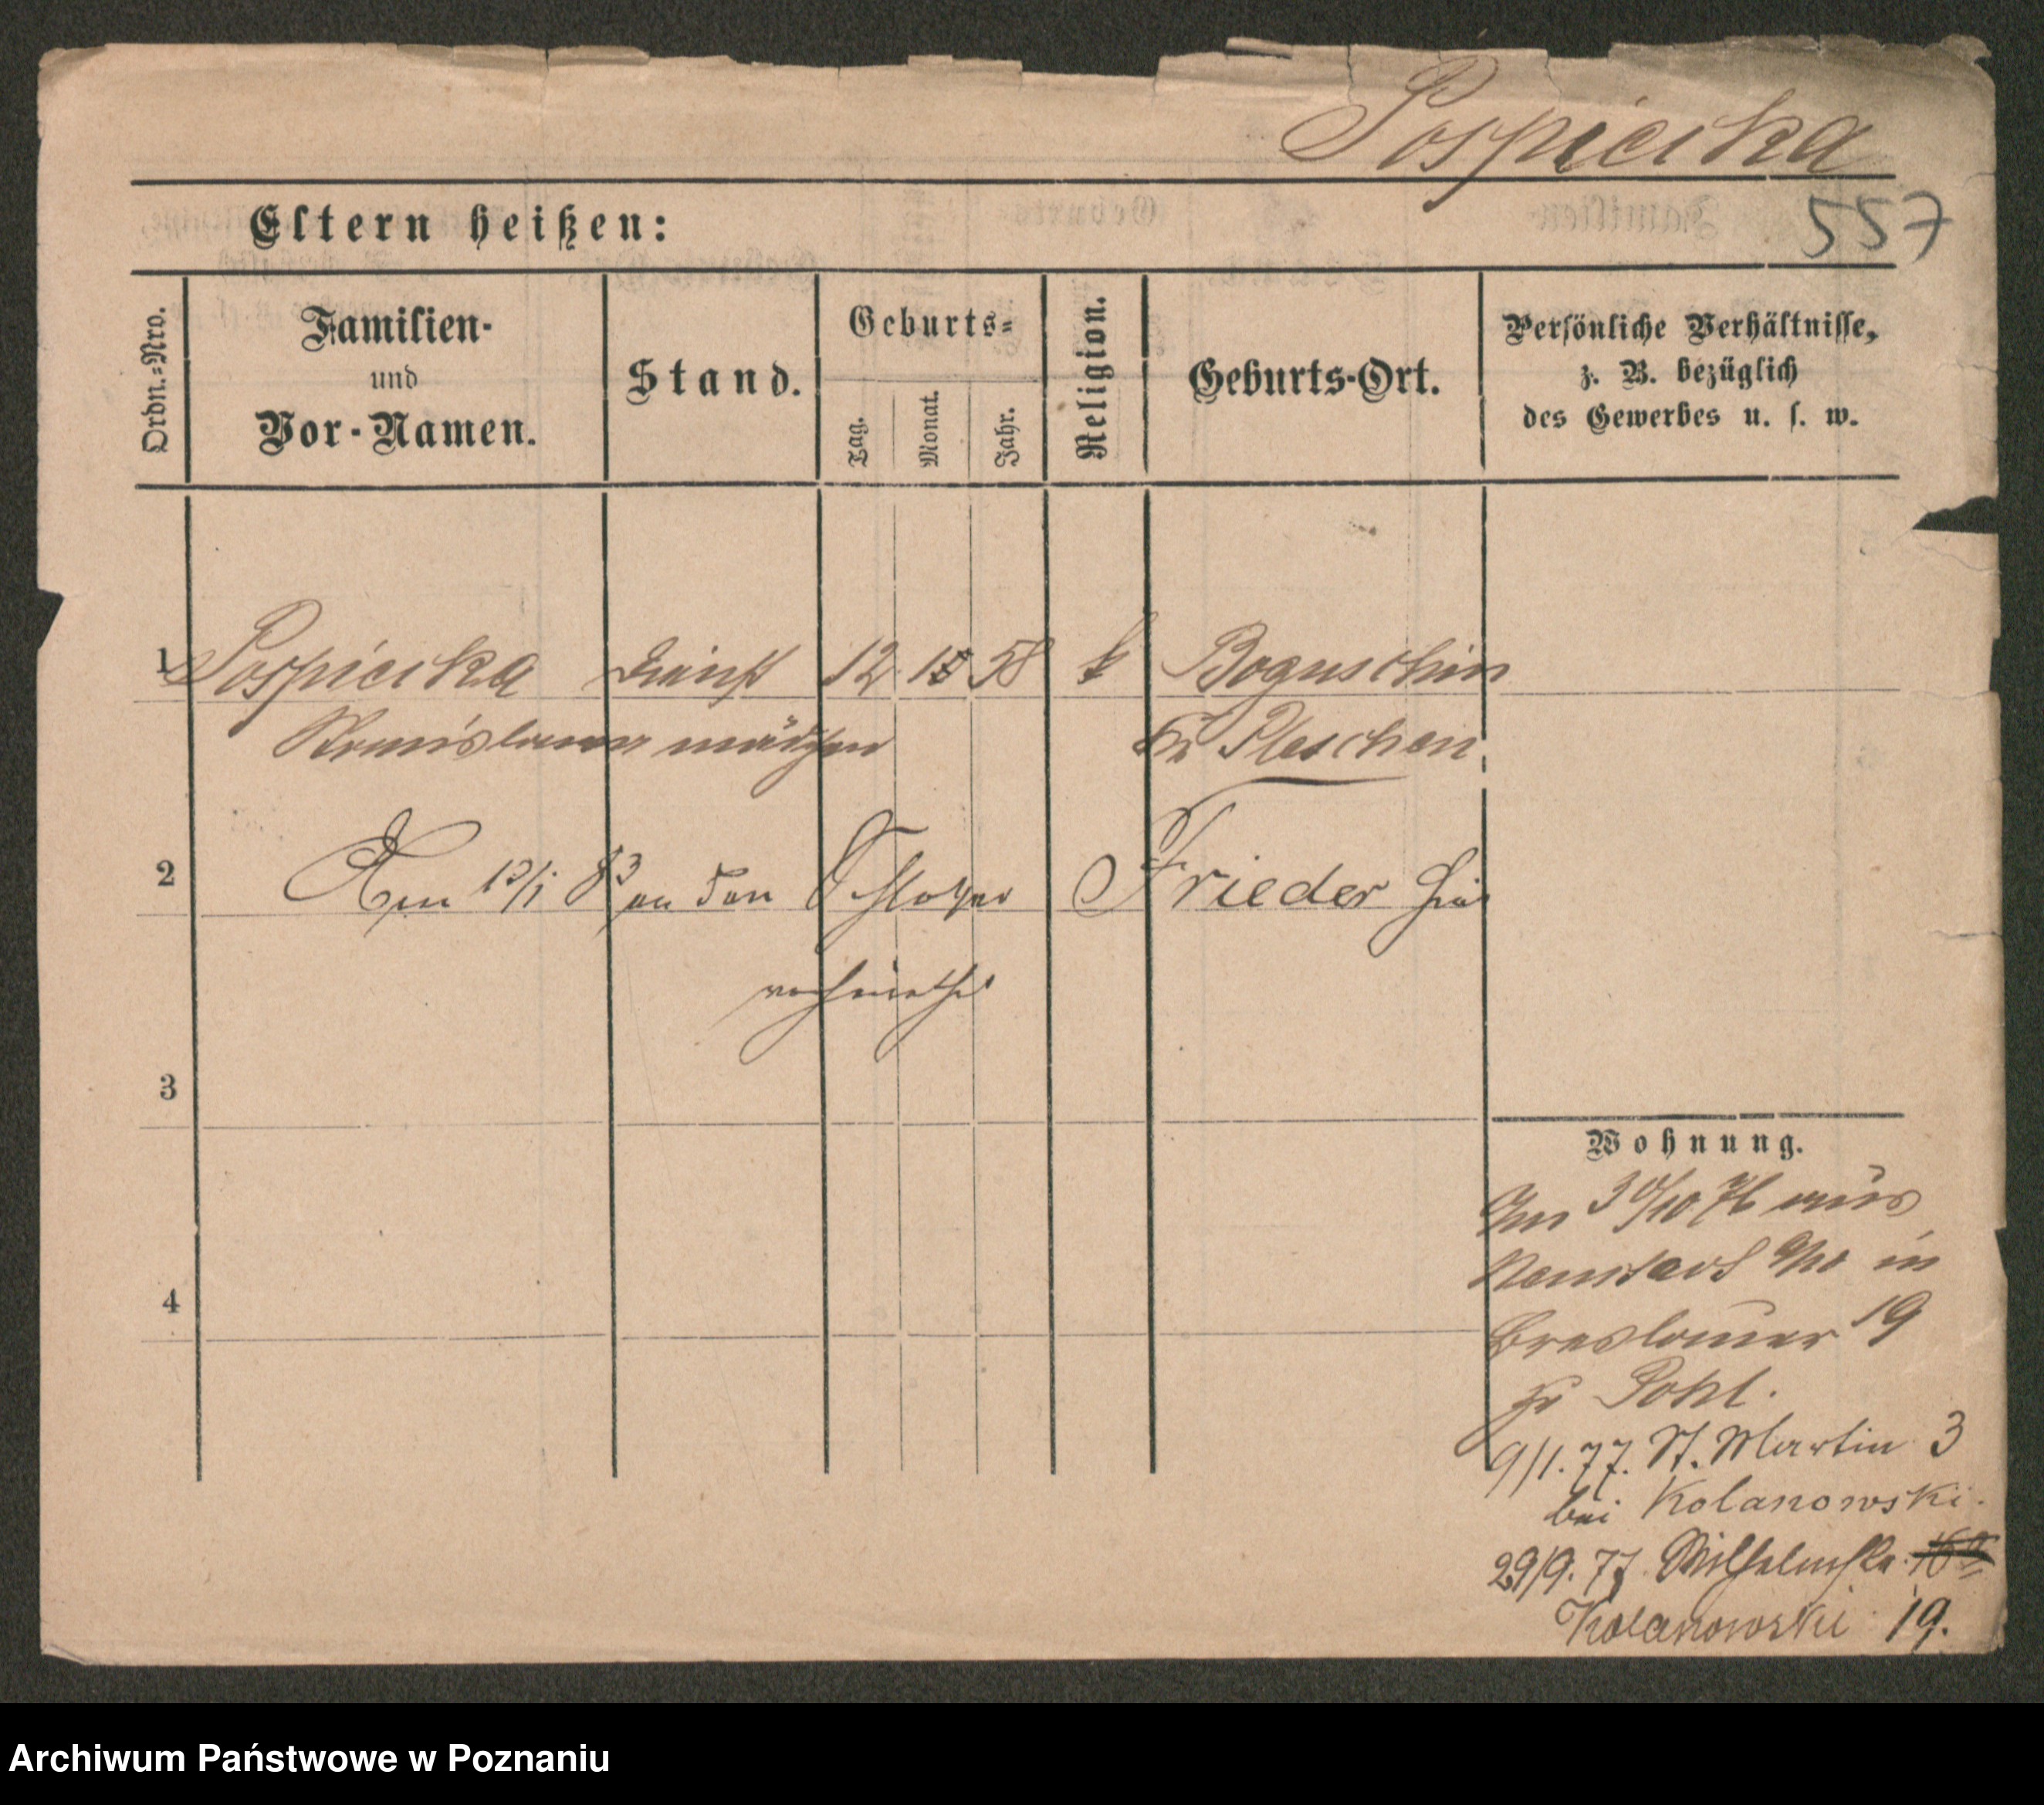 Pospieska
557
Eltern heißen:
Ordn.=Nro.
Familien-
und
Vor-Namen.
Stand.
Geburts=
Tag.
Monat.
Jahr.
Religion.
Geburts-Ort.
Persönliche Verhältnisse,
z. B. bezüglich
des Gewerbes u. s. w.
1 Pospieska Dienst 12 58 k Boguschin
Stanislawa mädchen Kr Pleschen
2 Am 83 an den Schlosser Frieder hier
verheirathet
3
4
Wohnung.
Am 30/10 76 aus
Neustadt in
Breslauer 19
Pohl.
9/1.77. St. Martin 3
bei Kolanowski.
29/9.77. Wilhelmstr.
Kolanowski 19.
Archiwum Państwowe w Poznaniu